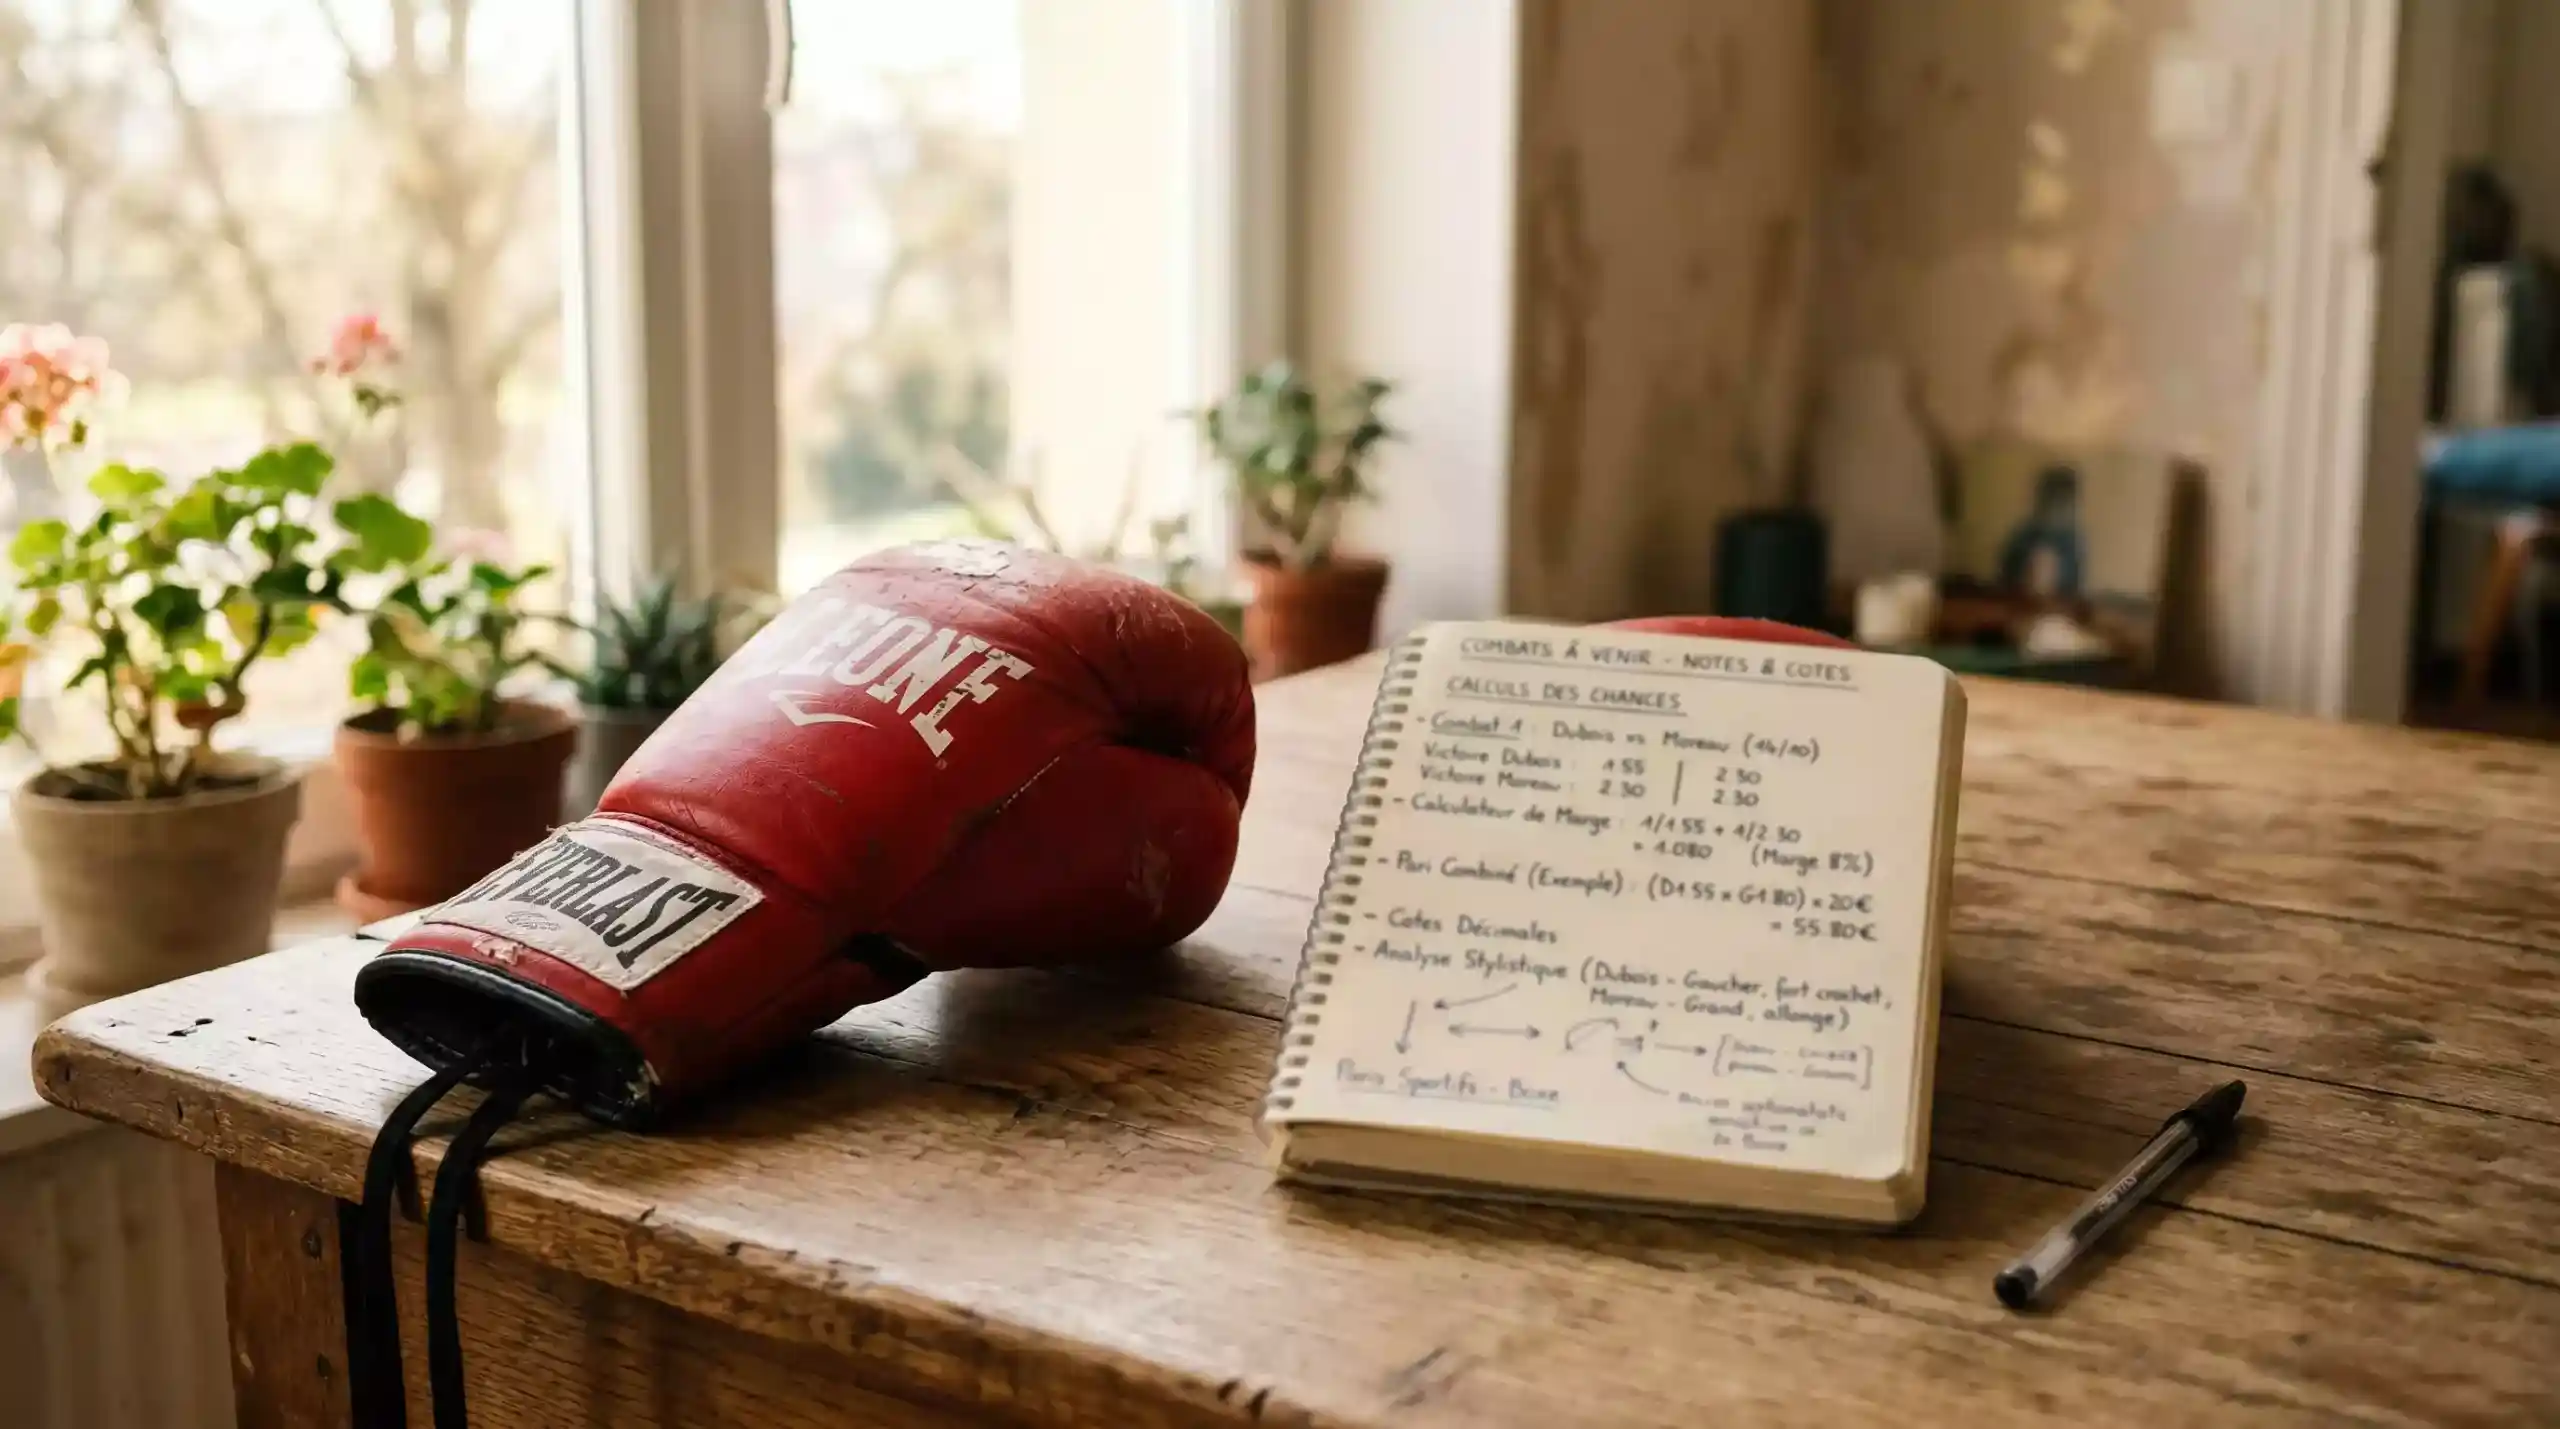 LEONE
EVERLAST
COMBATS À VENIR - NOTES & COTES
CALCULS DES CHANCES
- Combat 1 : Dubois vs Moreau (14/10)
Victoire Dubois : 1.55 | 2.30
Victoire Moreau : 2.30 | 2.30
- Calculateur de Marge : 1/1.55 + 1/2.30
= 1.080 (Marge 8%)
- Pari Combiné (Exemple) : (D1.55 x G1.80) x 20€
= 55.80€
- Cotes Décimales
- Analyse Stylistique (Dubois - Gaucher, fort crochet,
Moreau - Grand, allonge)
Paris Sportifs - Boxe